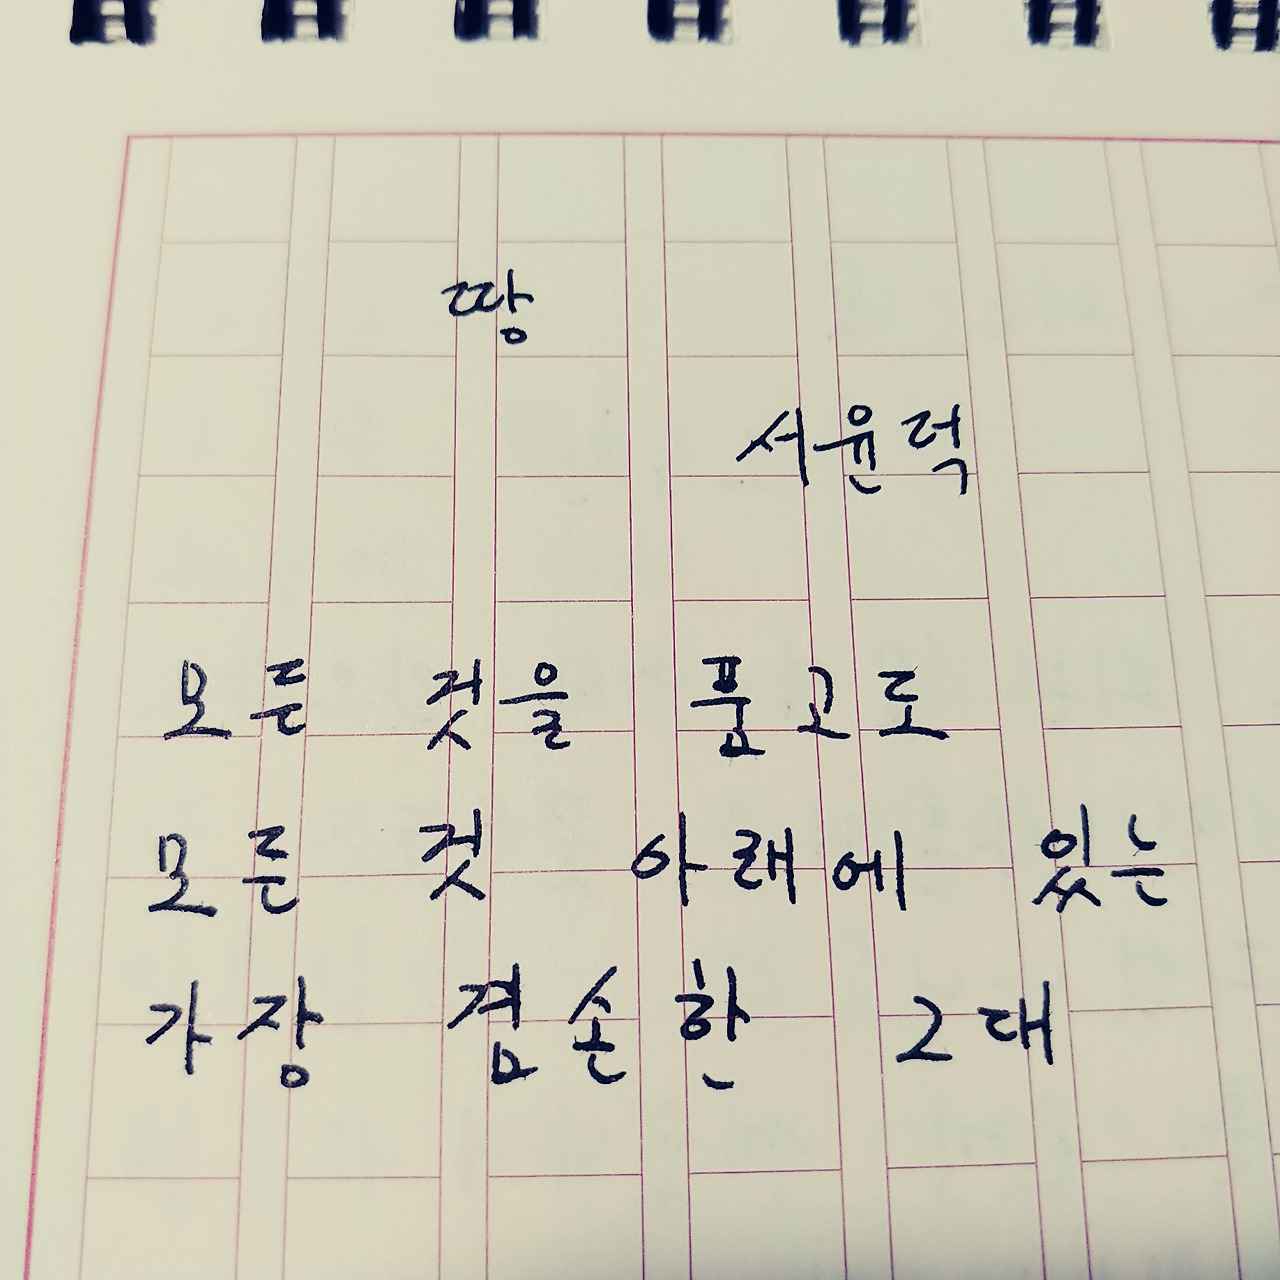 땅
서윤덕
모든 것을 품고도
모든 것 아래에 있는
가장 겸손한 그대